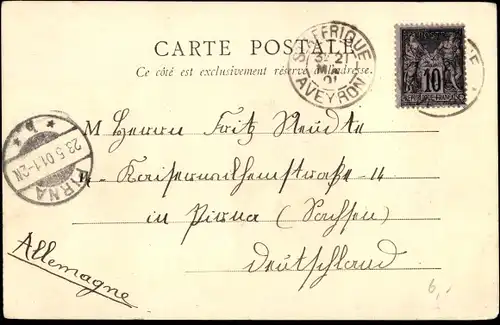 CARTE POSTALE
Ce côté est exclusivement réservé à l'adresse.
ST AFFRIQUE
3E 21
MAI
01
AVEYRON
POSTE
10
REPUBLIQUE FRANCAISE
M Herrn Fritz
Kaiserwilhemstraße 14
in Pirna (Sachsen)
Deutschland
Allemagne
PIRNA
23.5.01.1-2N
6,-